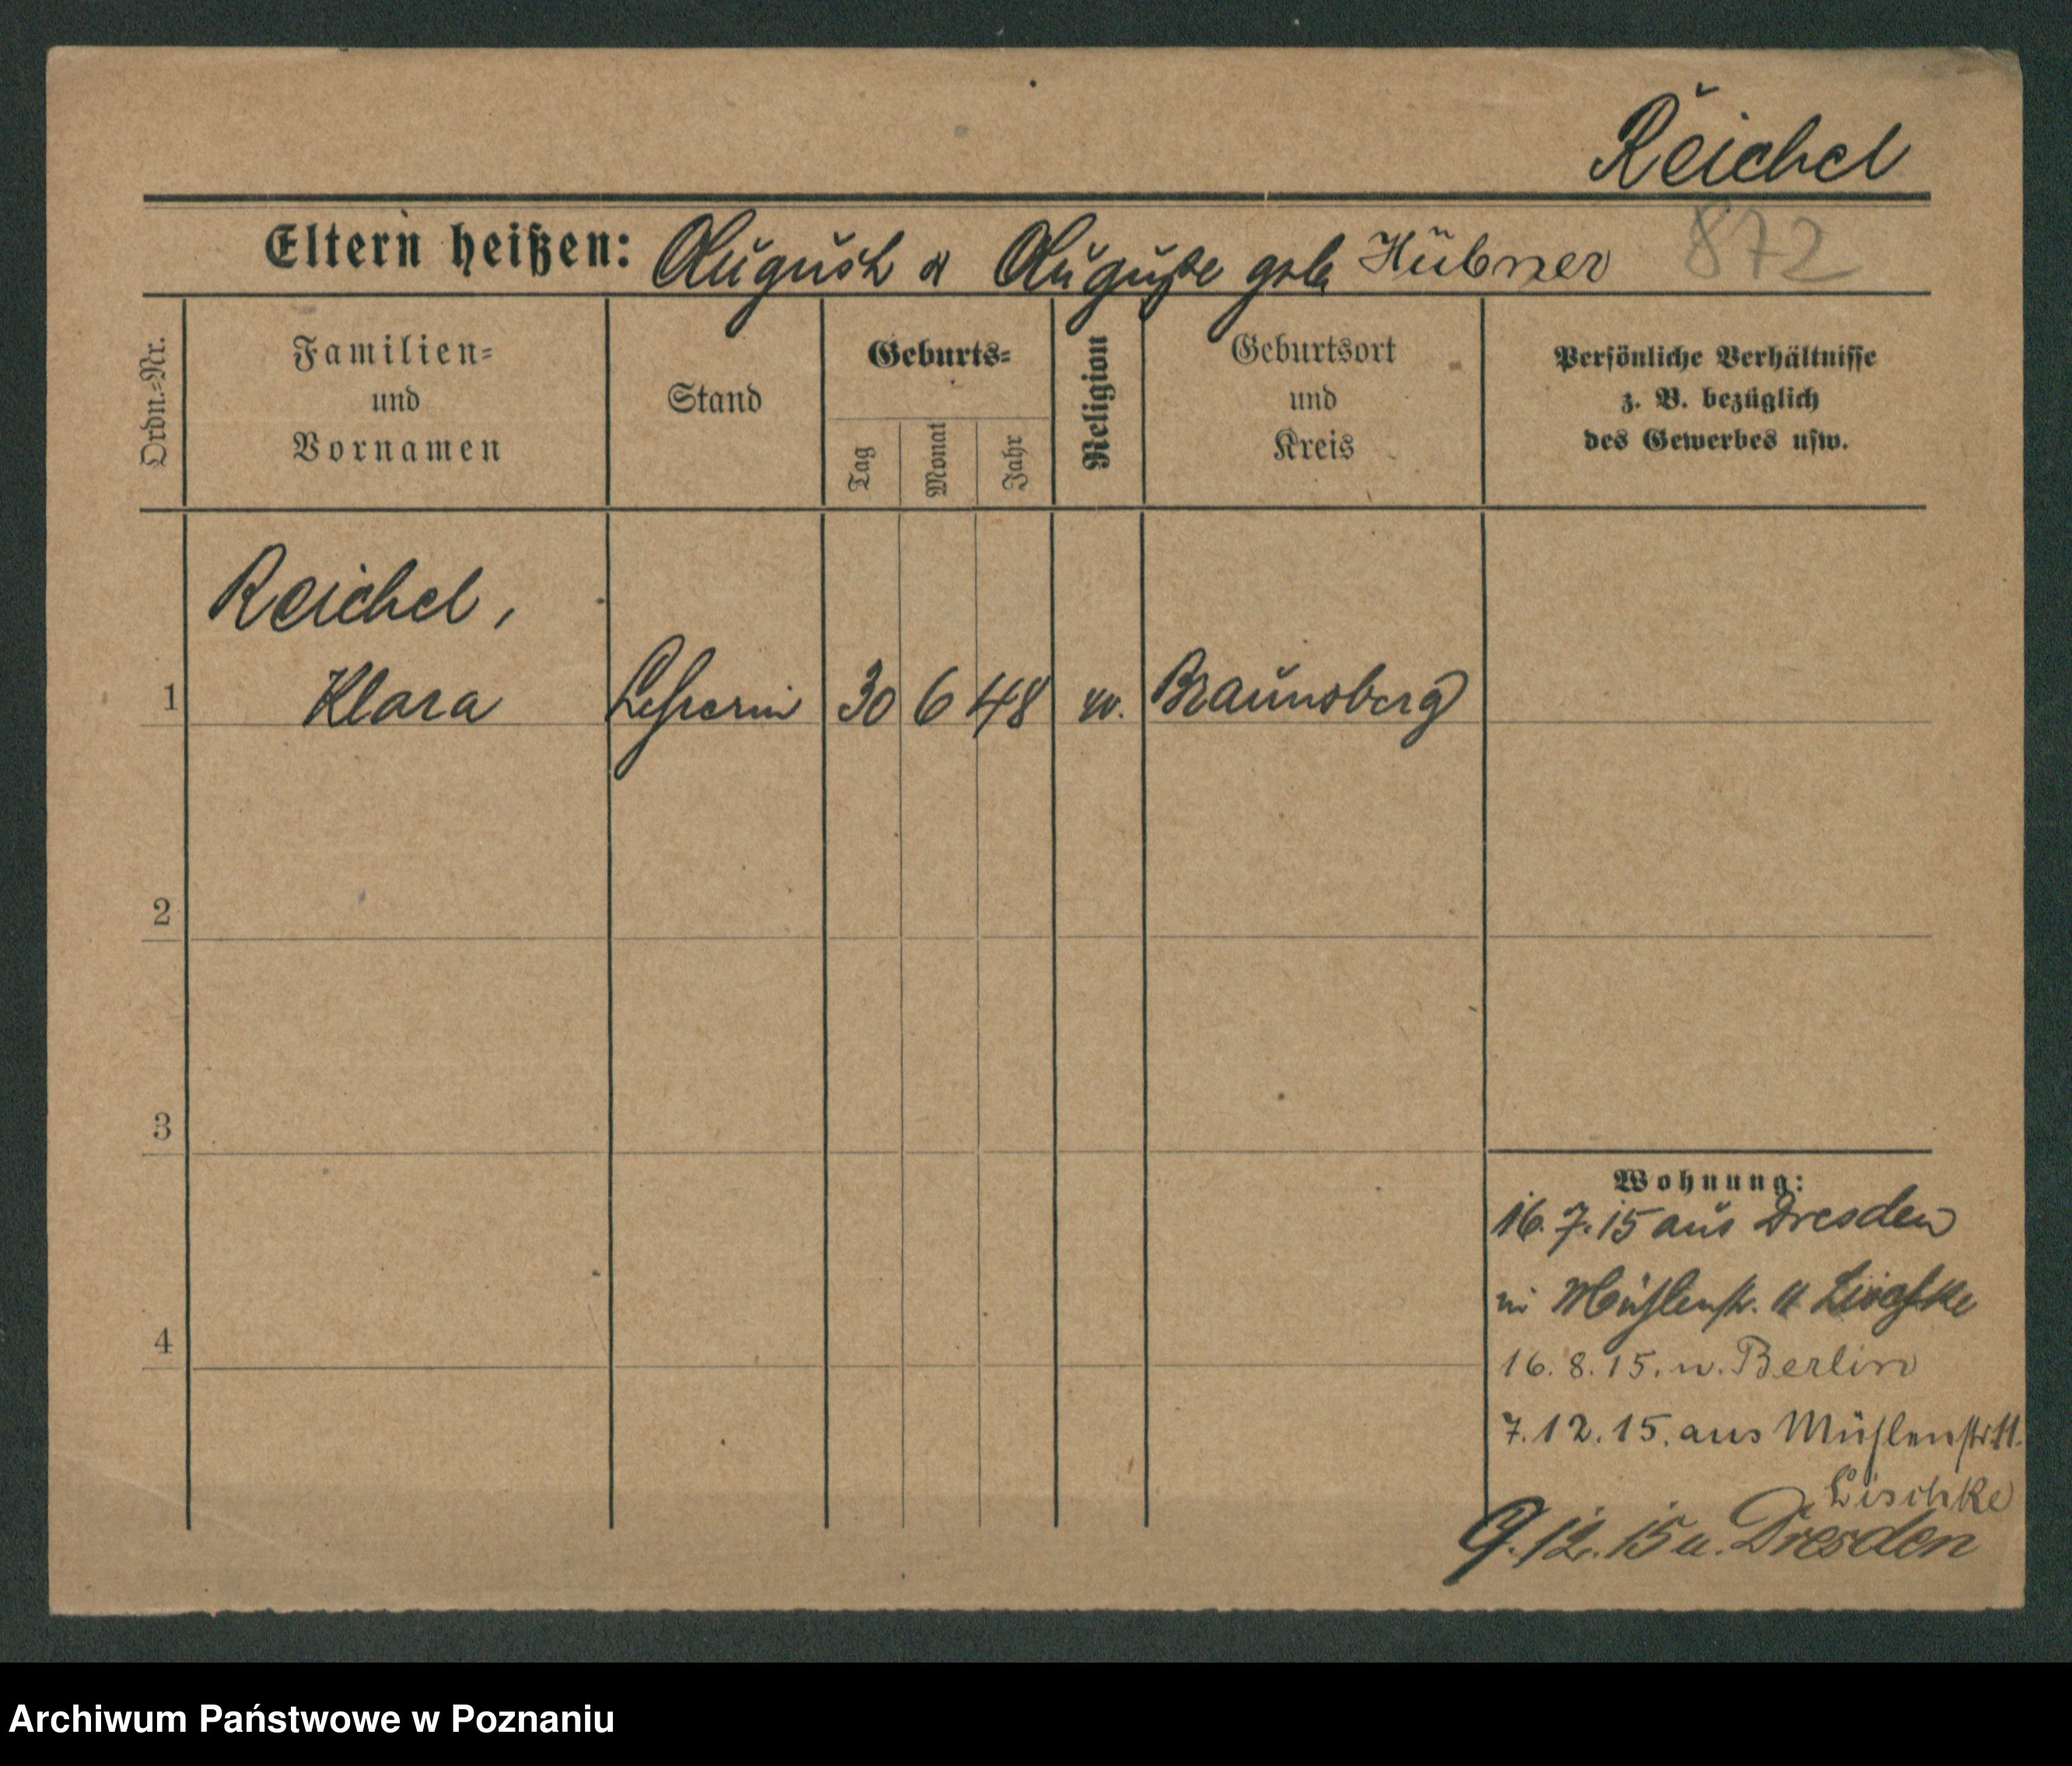 Reichel
Eltern heißen: August u Auguste geb Hübner 872
Ordn.=Nr.
Familien=
und
Vornamen
Stand
Geburts=
Tag
Monat
Jahr
Religion
Geburtsort
und
Kreis
Persönliche Verhältnisse
z. B. bezüglich
des Gewerbes usw.
Reichel,
1 Klara Lehrerin 30 6 48 ev. Braunsberg
2
3
4
Wohnung:
16.7.15 aus Dresden
in Mühlenstr. 11 Lischke
16.8.15. n. Berlin
7.12.15. aus Mühlenstr 11.
Lischke
9.12.15 n. Dresden
Archiwum Państwowe w Poznaniu